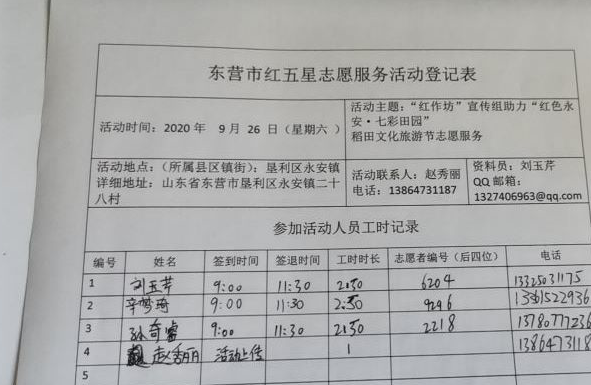 东营市红五星志愿服务活动登记表
活动时间：2020 年 9 月 26 日（星期六 ）
活动主题：“红作坊”宣传组助力“红色永
安·七彩田园”
稻田文化旅游节志愿服务
活动地点：（所属县区镇街）：垦利区永安镇
详细地址：山东省东营市垦利区永安镇二十
八村
活动联系人：赵秀丽
电话：13864731187
资料员：刘玉芹
QQ 邮箱：
1327406963@qq.com
参加活动人员工时记录
编号 姓名 签到时间 签退时间 工时时长 志愿者编号（后四位） 电话
1 刘玉芹 9:00 11:30 2:30 6204 13325031175
2 辛梦琦 9:00 11:30 2:30 9296 13361522936
3 孙奇睿 9:00 11:30 2:30 2218 1378077236
4 赵秀丽 活动上传 1 1386473118
5